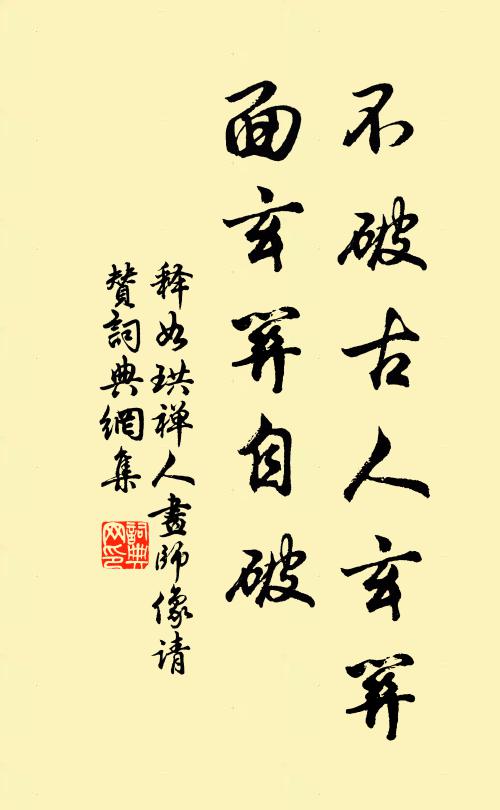 不破古人玄关
面玄关自破
释如珙禅人畫师像请
赞詞典網集
詞典网印